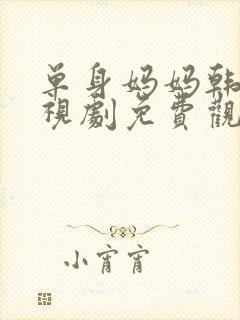 单身妈妈韩
视劇免費觀
小宵宵